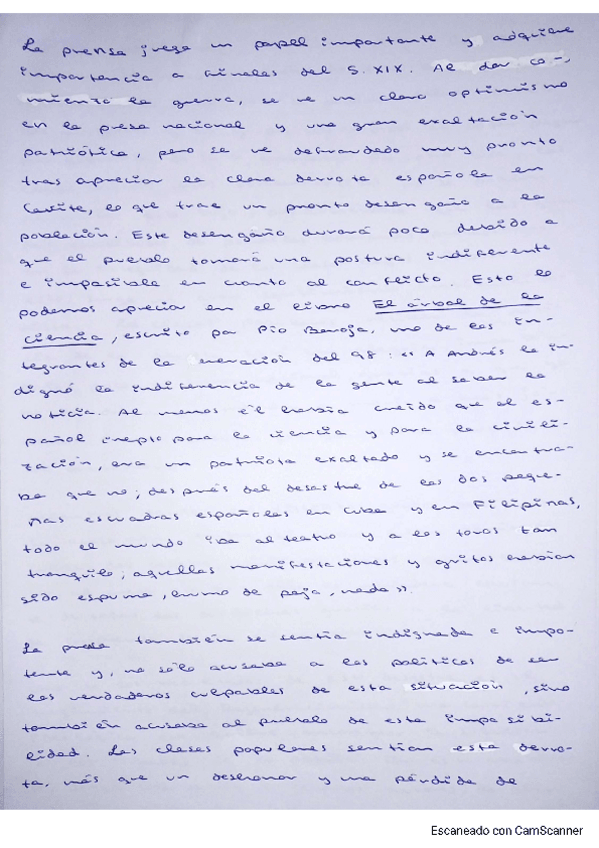 La prensa juega un papel importante y adquiere
importancia a finales del S. XIX. Al dar co-
mienzo la guerra, se ve un claro optimismo
en la presa nacional y una gran exaltación
patriótica, pero se ve defraudado muy pronto
tras apreciar la clara derrota española en
Cavite, lo que trae un pronto desengaño a la
población. Este desengaño durará poco debido a
que el pueblo tomará una postura indiferente
e impasible en cuanto al conflicto. Esto lo
podemos apreciar en el libro El árbol de la
ciencia, escrito por Pío Baroja, uno de los in-
tegrantes de la neración del 98: «A Andrés le in-
dignó la indiferencia de la gente al saber la
noticia. Al menos él había creído que el es-
pañol inepto para la ciencia y para la civili-
zación, era un patriota exaltado y se encontra-
ba que no; después del desastre de las dos peque-
ñas escuadras españolas en Cuba y en Filipinas,
todo el mundo iba al teatro y a los toros tan
tranquilo; aquellas manifestaciones y gritos habían
sido espuma, humo de paja, nada».
La presa también se sentía indignada e impo-
tente y, no sólo acusaba a los políticos de ser
los verdaderos culpables de esta situación, sino
también acusaba al pueblo de esta impasibi-
lidad. Las clases populares sentían esta derro-
ta, más que un deshonor y una pérdida de
Escaneado con CamScanner